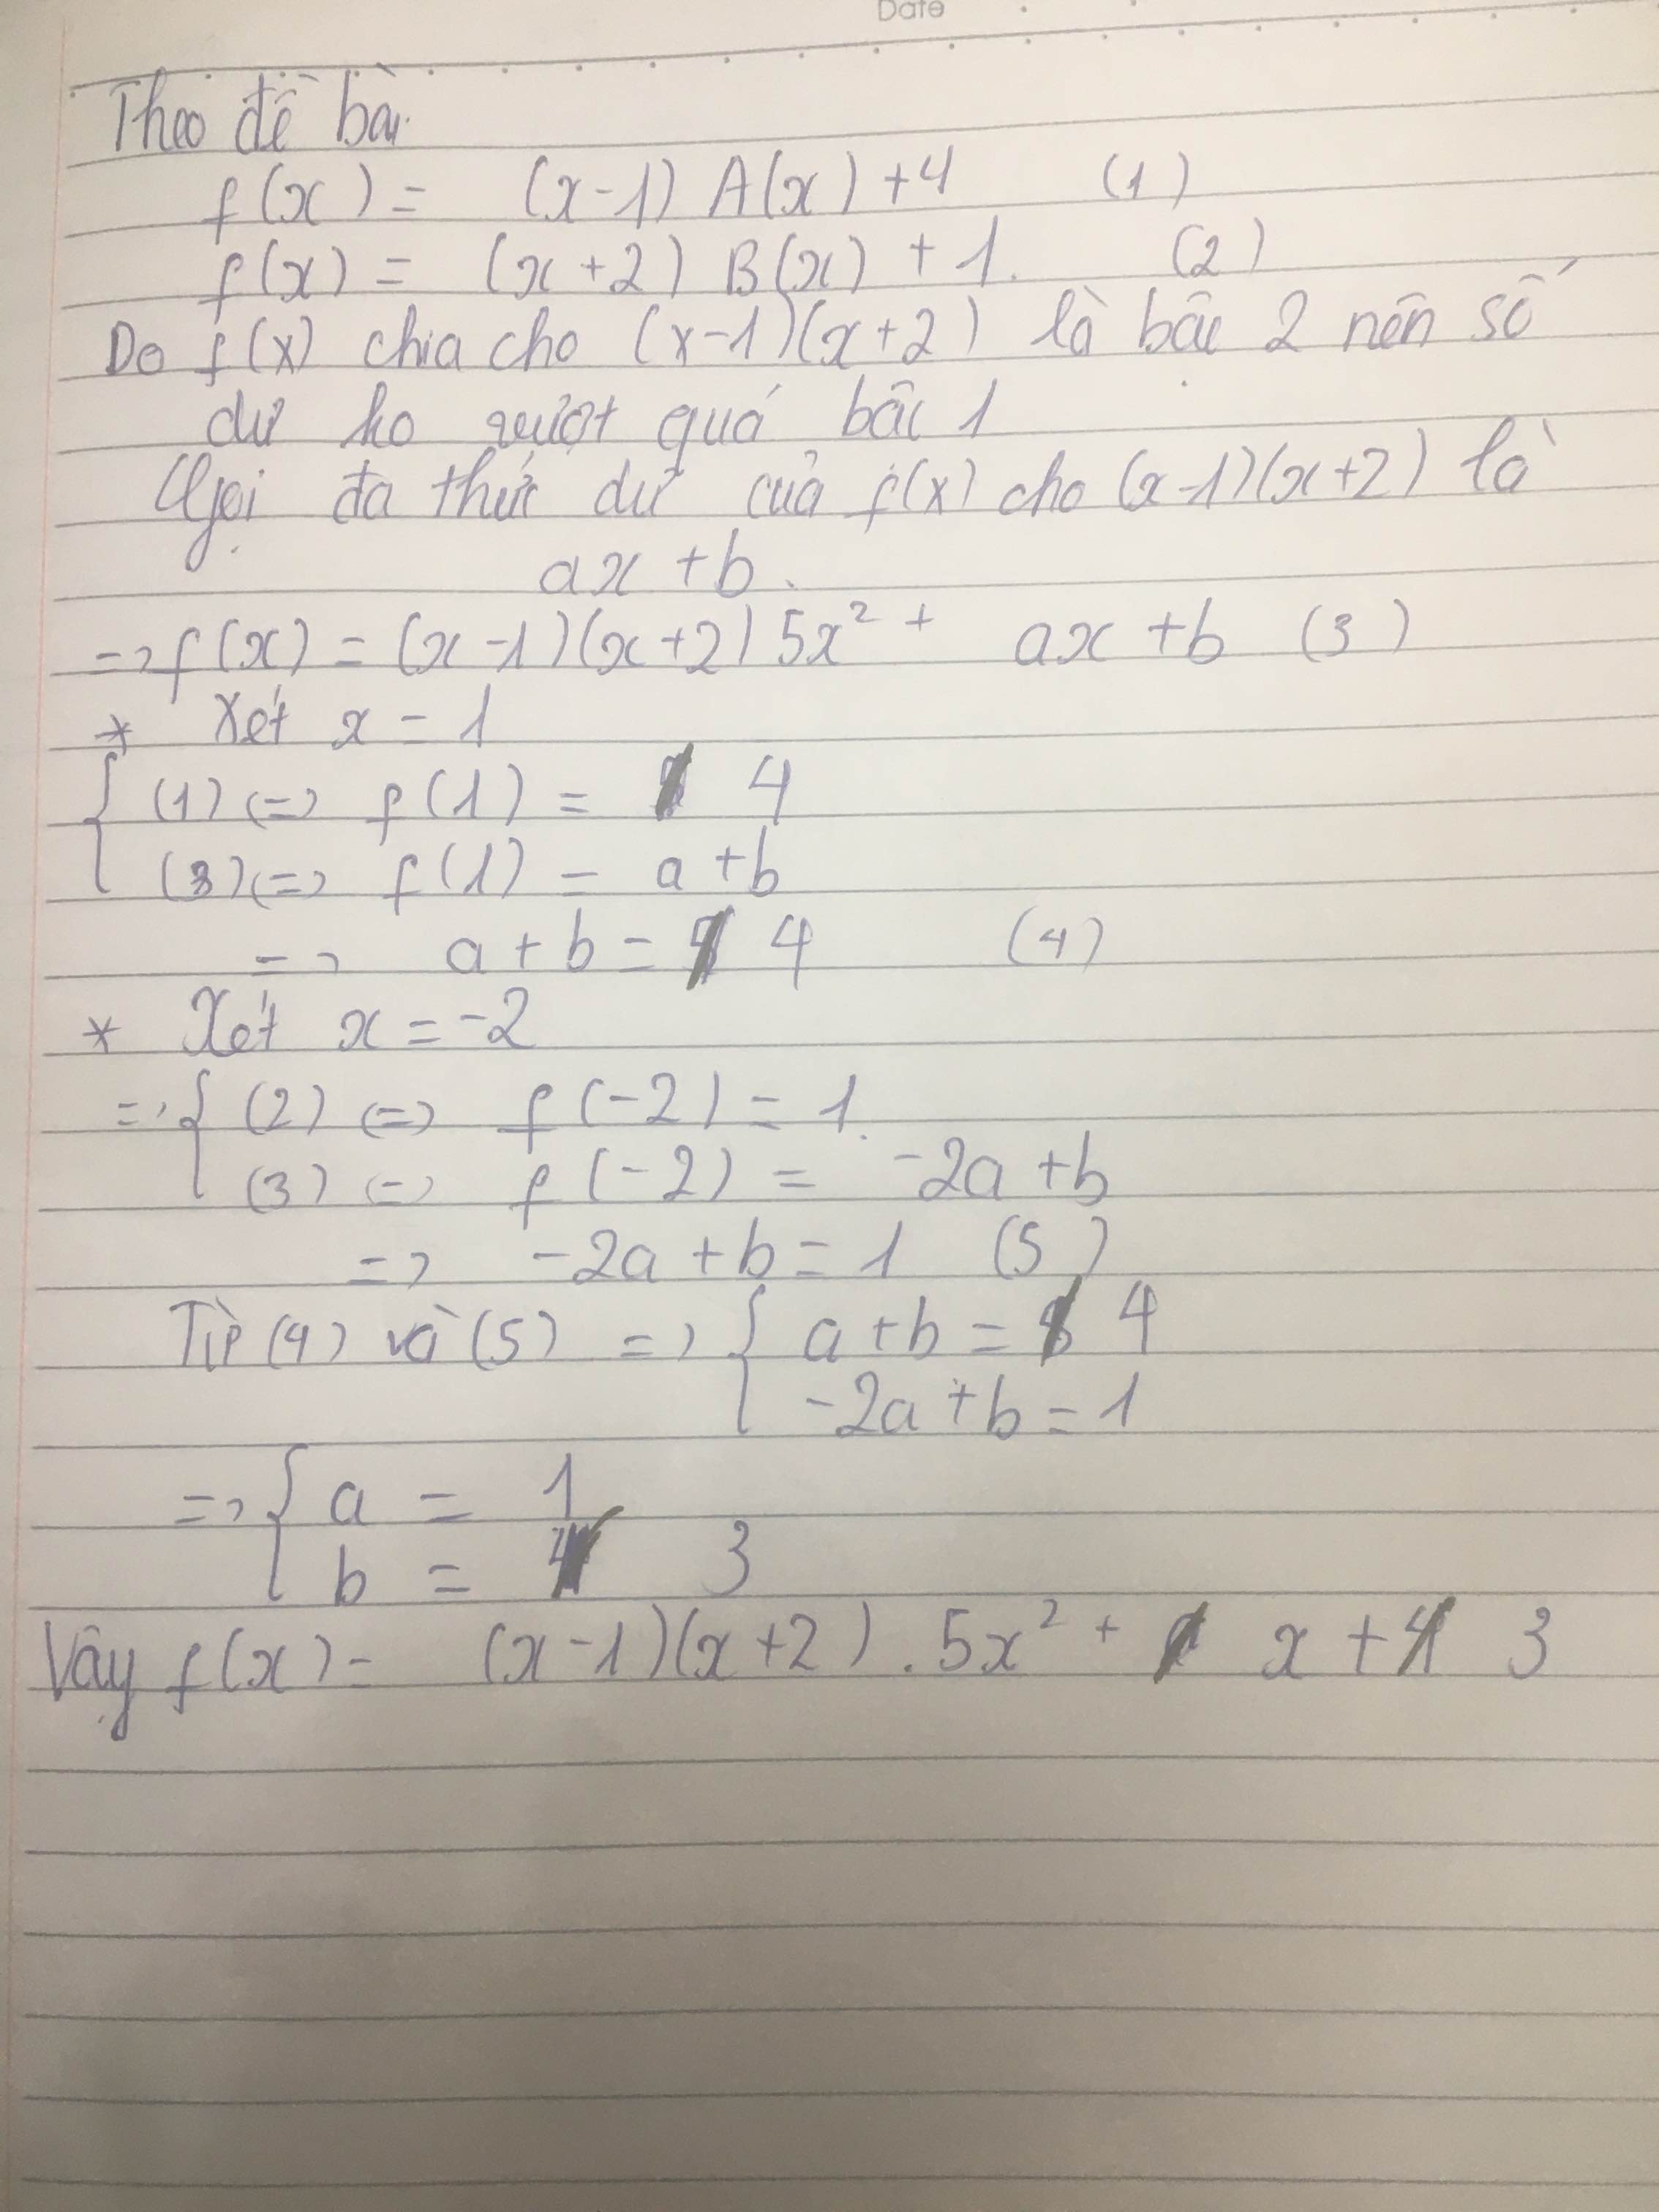 Date
Theo đề bài
f(x) = (x-1) A(x) + 4 (1)
f(x) = (x+2) B(x) + 1. (2)
Do f(x) chia cho (x-1)(x+2) là bậc 2 nên số
dư ko vượt quá bậc 1
Gọi đa thức dư của f(x) cho (x-1)(x+2) là
ax + b.
=> f(x) = (x-1)(x+2) 5x² + ax + b (3)
* Xét x = 1
{ (1) <=> f(1) = 4
(3) <=> f(1) = a + b
=> a + b = 4 (4)
* Xét x = -2
=> { (2) <=> f(-2) = 1.
(3) <=> f(-2) = -2a + b
=> -2a + b = 1 (5)
Từ (4) và (5) => { a + b = 4
-2a + b = 1
=> { a = 1
b = 3
Vậy f(x) = (x-1)(x+2) . 5x² + x + 3